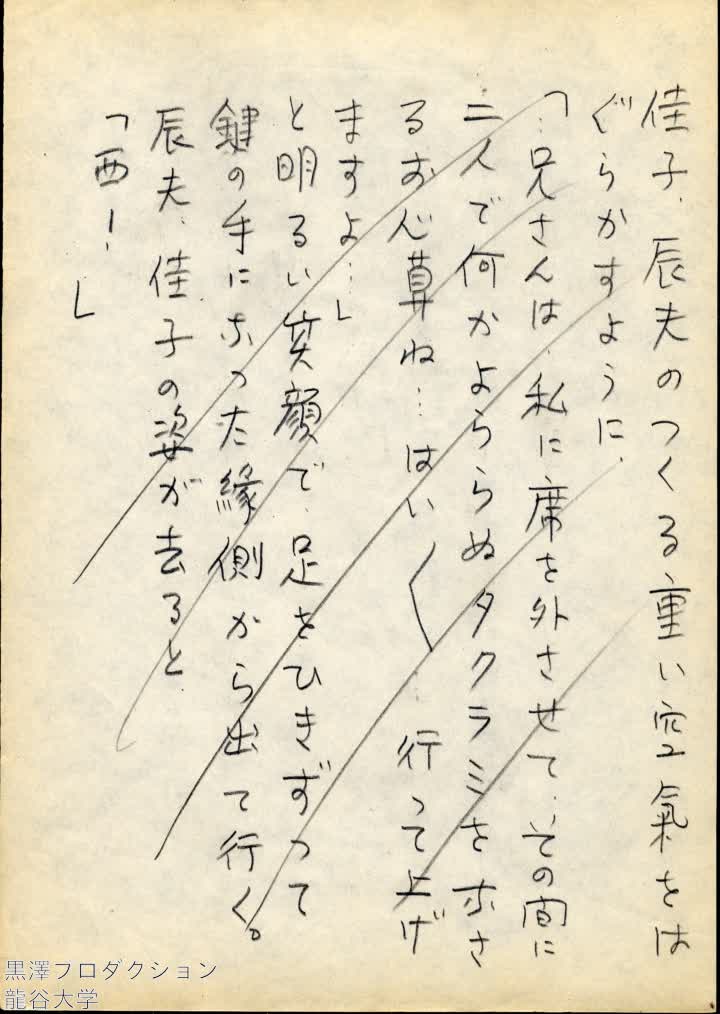 佳子、辰夫のつくる重い空氣をは
ぐらかすように、
「兄さんは、私に席を外させて、その間に
二人で何かよららぬタクラミをホさ
るお心算ね…はい〱… 行って上げ
ますよ…」
と明るい笑顔で、足をひきずって
鍵の手になった縁側から出て行く。
辰夫、佳子の姿が去ると
「西！
」
黒澤プロダクション
龍谷大学